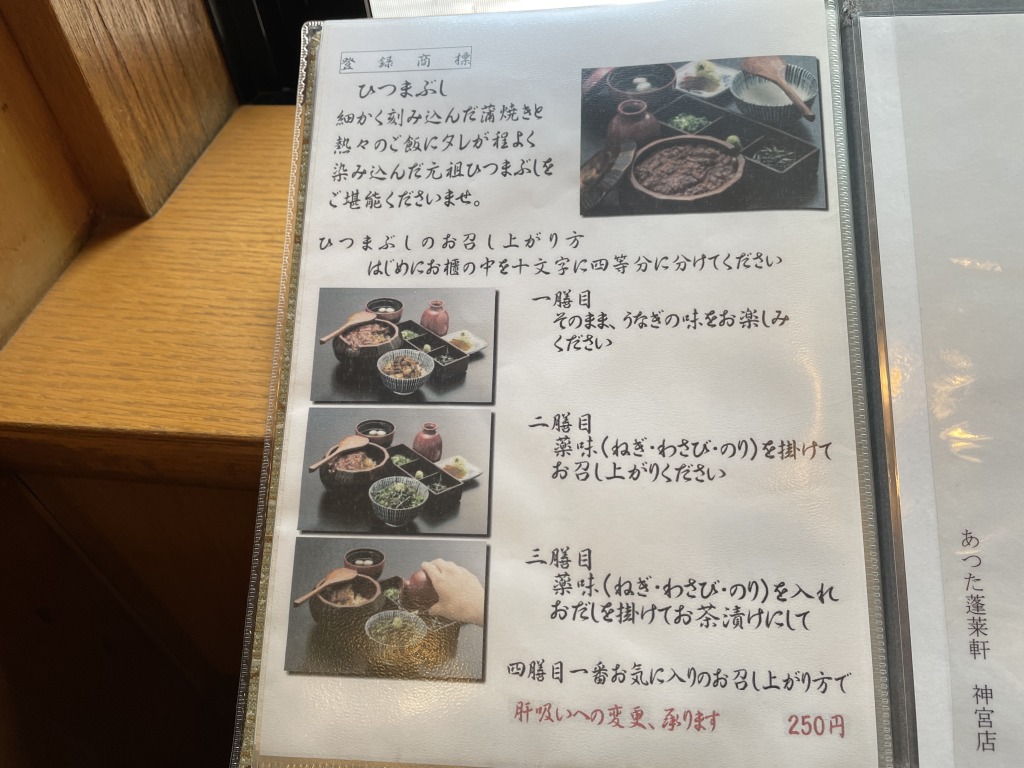 登録商標
ひつまぶし
細かく刻み込んだ蒲焼きと
熱々のご飯にタレが程よく
染み込んだ元祖ひつまぶしを
ご堪能くださいませ。
ひつまぶしのお召し上がり方
はじめにお櫃の中を十文字に四等分に分けてください
一膳目
そのまま、うなぎの味をお楽しみ
ください
二膳目
薬味(ねぎ・わさび・のり)を掛けて
お召し上がりください
三膳目
薬味(ねぎ・わさび・のり)を入れ
おだしを掛けてお茶漬けにして
四膳目一番お気に入りのお召し上がり方で
肝吸いへの変更、承ります 250円
あつた蓬莱軒 神宮店